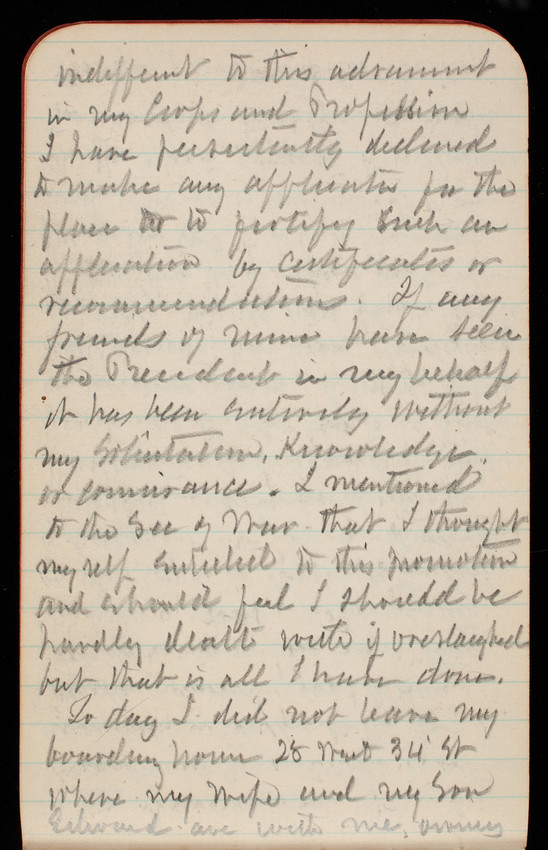 indifferent to this advancement
in my Corps and Profession
I have persistently declined
to make any application for the
place to to fortify such an
application by certificates or
recommendations. If any
friends of mine have seen
the President in my behalf
it has been entirely without
my Solicitation, Knowledge,
or connivance. I mentioned
to the Sec of War that I thought
myself entitled to this promotion
and should feel I should be
hardly dealt with if overslaughed
but that is all I have done.
To day I did not leave my
boarding house 28 West 34' St
where my wife and my Son
Edward are with me, owing